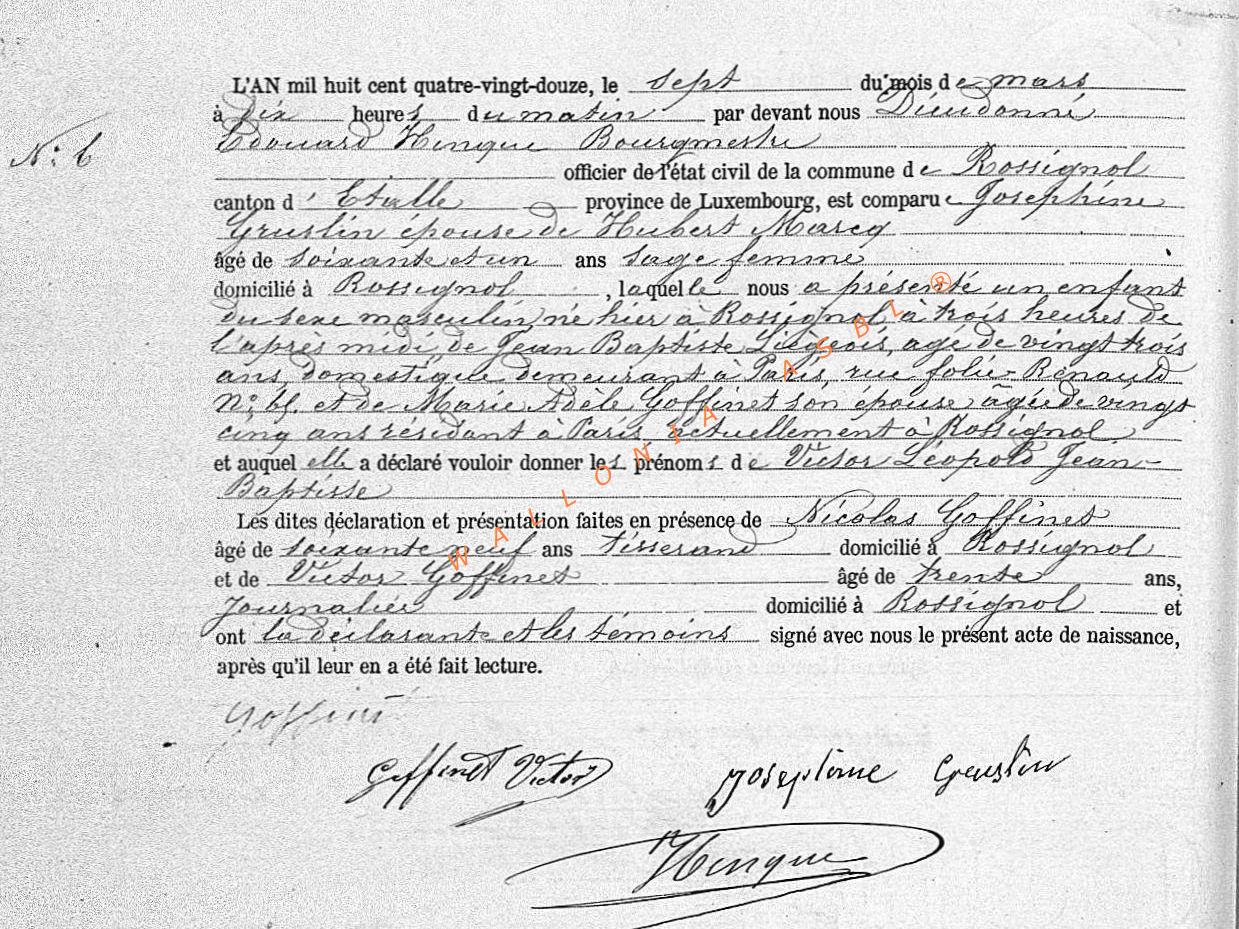 L'AN mil huit cent quatre-vingt-douze, le sept du mois de mars
à dix heures du matin par devant nous Dieudonné
Edouard Hinque Bourgmestre
N° 6
officier de l'état civil de la commune de Rossignol
canton d'Etalle province de Luxembourg, est comparue Josephine
Gruslin épouse de Hubert Marcq
âgé de soixante et un ans sage femme
domicilié à Rossignol, laquelle nous a présenté un enfant
du sexe masculin, né hier à Rossignol à trois heures de
l'après midi de Jean Baptiste Liégeois, agé de vingt trois
ans, domestique demeurant à Paris, rue folie-Renault
N° et de Marie Adèle Goffinet son épouse âgée de vingt
cinq ans résidant à Paris actuellement à Rossignol
et auquel elle a déclaré vouloir donner les prénoms de Victor Léopold Jean-
Baptiste
Les dites déclaration et présentation faites en présence de Nicolas Goffinet
âgé de soixante neuf ans tisserand domicilié à Rossignol
et de Victor Goffinet âgé de trente ans,
Journalier domicilié à Rossignol et
ont la déclarante et les témoins signé avec nous le présent acte de naissance,
après qu'il leur en a été fait lecture.
Goffinet
Goffinet Victor Josephine Gruslin
Hinque
WALLONIA ASBL ®